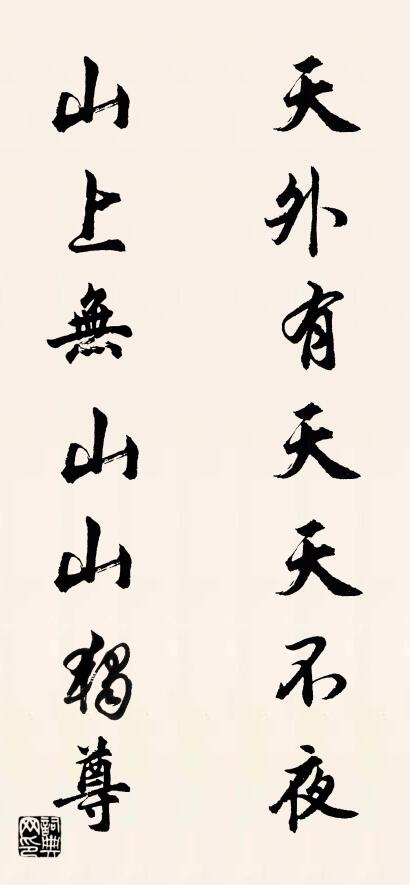 天外有天天不夜
山上無山山獨尊
詞典网印